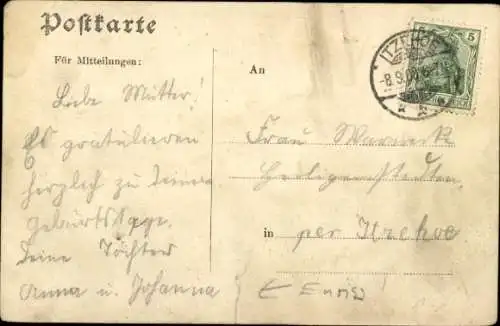 Postkarte
Für Mitteilungen:
Liebe Mutter!
Es gratulieren
herzlich zu deinem
Geburtstage.
deine Töchter
Anna u. Johanna
An
Frau Warneck
Heiligenstedten
in per Itzehoe
ITZEHOE
-8.9.
5